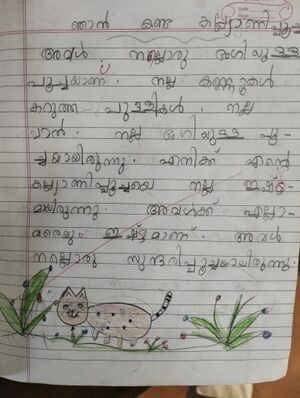 ഞാൻ കണ്ട കല്ല്യാണിപ്പൂച്ച
അവൾ നല്ലൊരു ഭംഗിയുള്ള
പൂച്ചയാണ്. നല്ല കണ്ണുകൾ
കറുത്ത പുള്ളികൾ. നല്ല
വാൽ. നല്ല ഭംഗിയുള്ള പൂ-
ച്ചയായിരുന്നു. എനിക്ക് എന്റെ
കല്ല്യാണിപ്പൂച്ചയെ നല്ല ഇഷ്ട
മയിരുന്നു. അവൾക്ക് എല്ലാ-
വരെയും ഇഷ്ടമാണ്. അവൾ
നല്ലൊരു സുന്ദരിപ്പൂച്ചയായിരുന്നു.